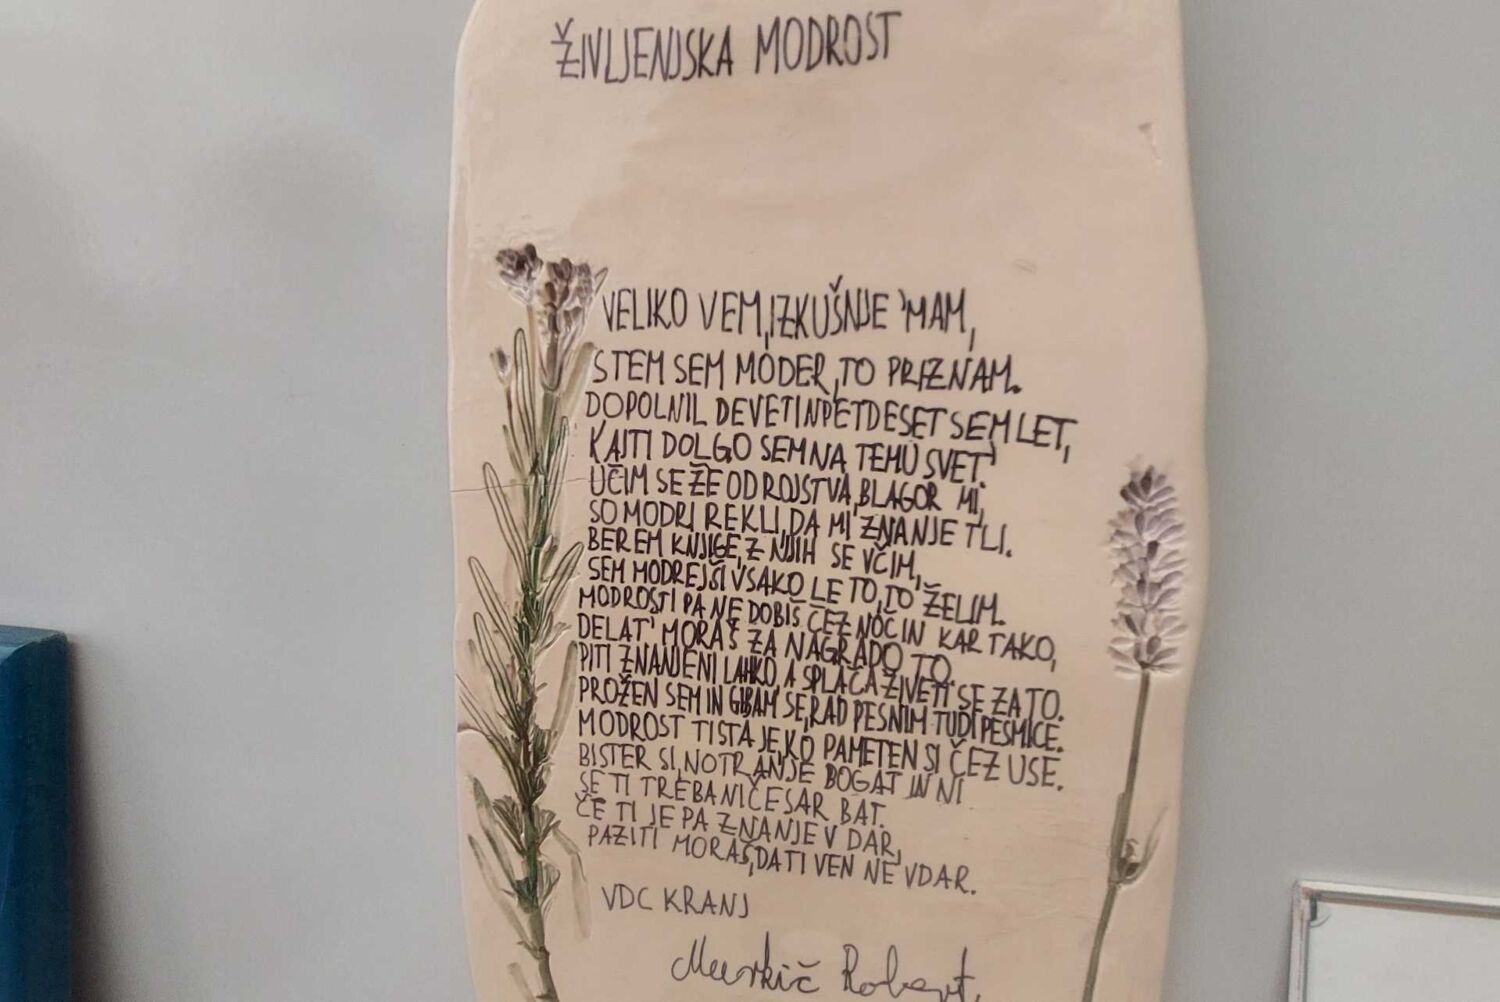 ŽIVLJENJSKA MODROST
VELIKO VEM, IZKUŠNJE 'MAM,
S TEM SEM MODER, TO PRIZNAM.
DOPOLNIL DEVETINPETDESET SEM LET,
KAJTI DOLGO SEM NA TEMU SVET.
UČIM SE ŽE OD ROJSTVA, BLAGOR MI,
SO MODRI REKLI, DA MI ZNANJE TLI.
BEREM KNJIGE, Z NJIH SE VČIM,
SEM MODREJŠI VSAKO LETO, TO ŽELIM.
MODROSTI PA NE DOBIŠ ČEZ NOČ IN KAR TAKO,
DELAT' MORAŠ ZA NAGRADO TO.
PITI ZNANJE NI LAHKO, A SPLAČA ŽIVETI SE ZA TO.
PROŽEN SEM IN GIBAM SE, RAD PESNIM TUDI PESMICE.
MODROST TISTA JE, KO PAMETEN SI ČEZ USE.
BISTER SI, NOTRANJE BOGAT IN NI
SE TI TREBA NIČESAR BAT.
ČE TI JE PA ZNANJE V DAR,
PAZITI MORAŠ, DA TI VEN NE VDAR.
VDC KRANJ
Murkič Robert,